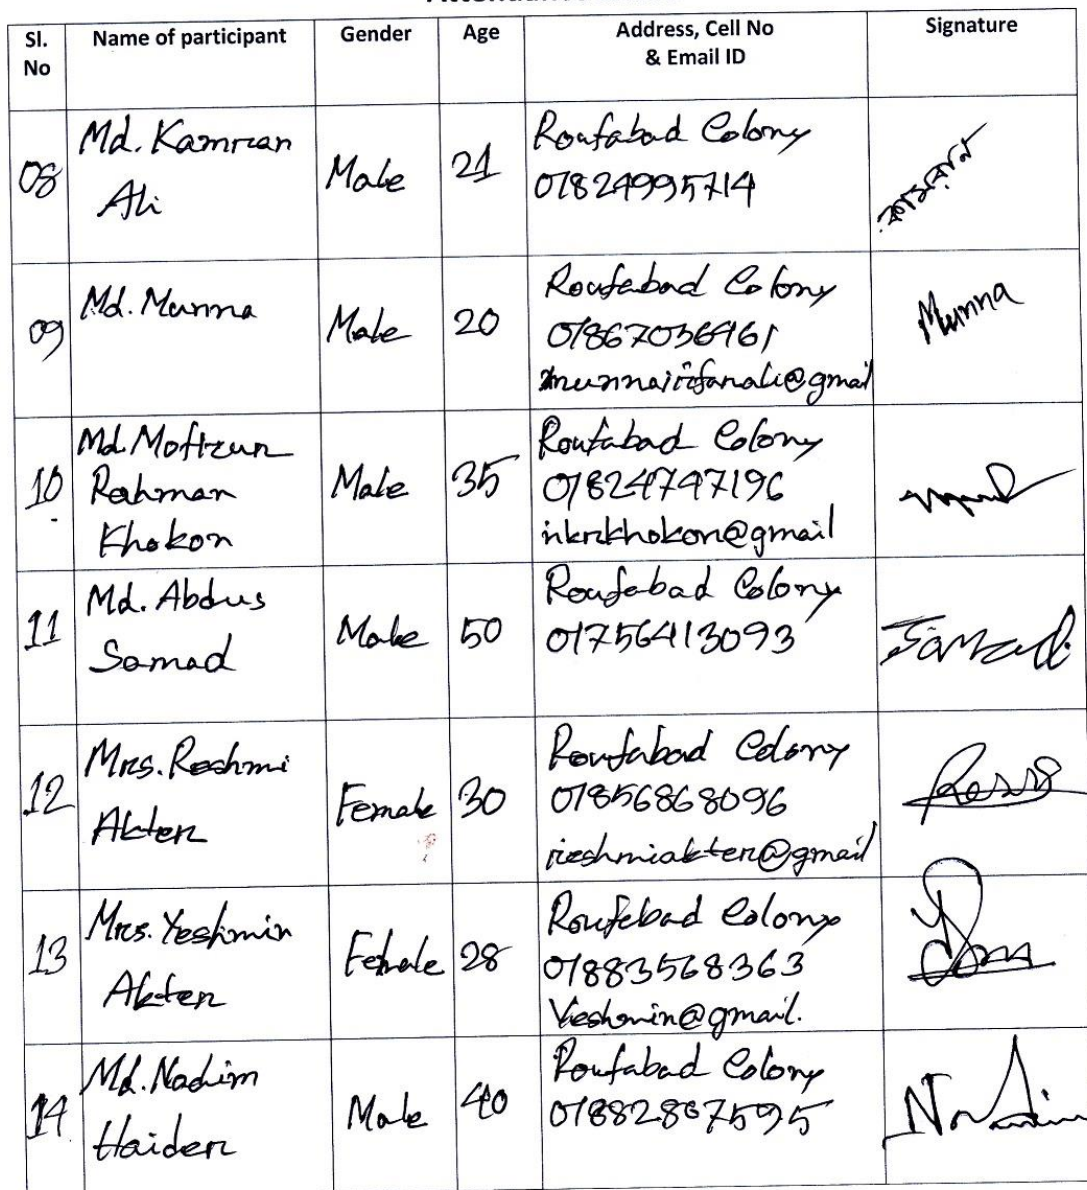 Sl. No
Name of participant
Gender
Age
Address, Cell No & Email ID
Signature
08
Md. Kamrran Ali
Male
21
Roufabad Colony
01824995714
09
Md. Munna
Male
20
Roufabad Colony
Munna
10
Rahman
Khokon
Male
35
Roufabad Colony
01824747196
11
Md. Abdus
Samad
Male
50
Roufabad Colony
01756413093
Samad
12
Mrs. Reshmi
Akter
Female
30
Roufabad Colony
01856868096
13
Mrs. Yeshmin
Akter
Female
28
Roufabad Colony
01883568363
Yeshmin@gmail.
14
Md. Nadim
Haider
Male
40
Roufabad Colony
01882867595
Nadim